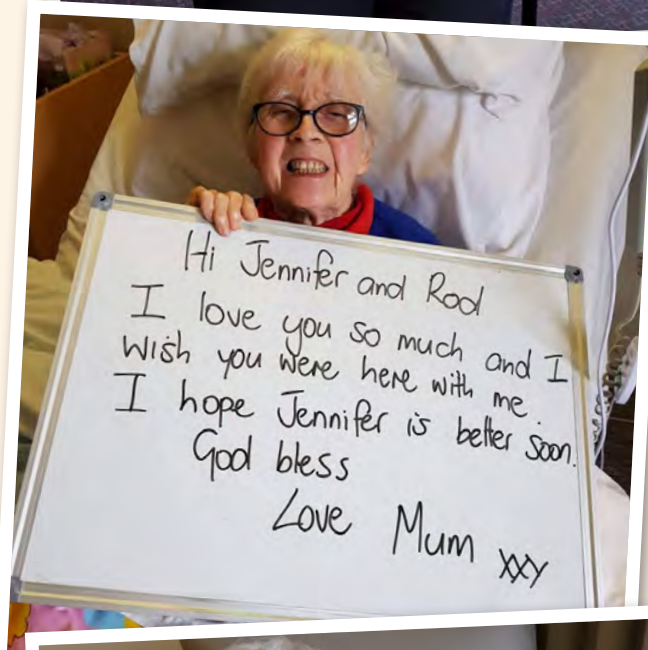 Hi Jennifer and Rod
I love you so much and I
wish you were here with me.
I hope Jennifer is better soon.
God bless
Love Mum xxy